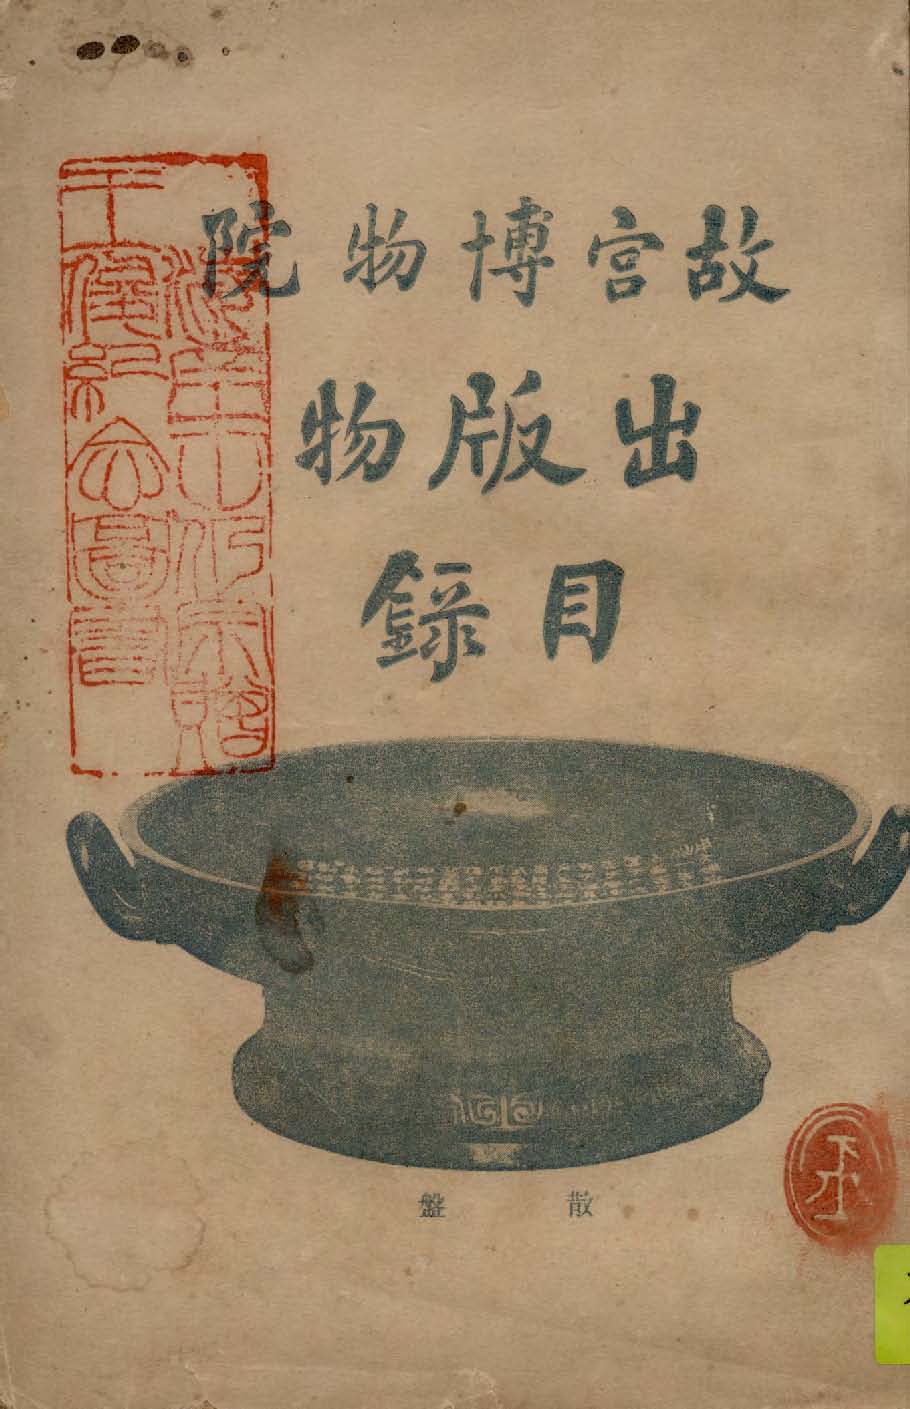 故宮博物院
出版物
目錄
散盤